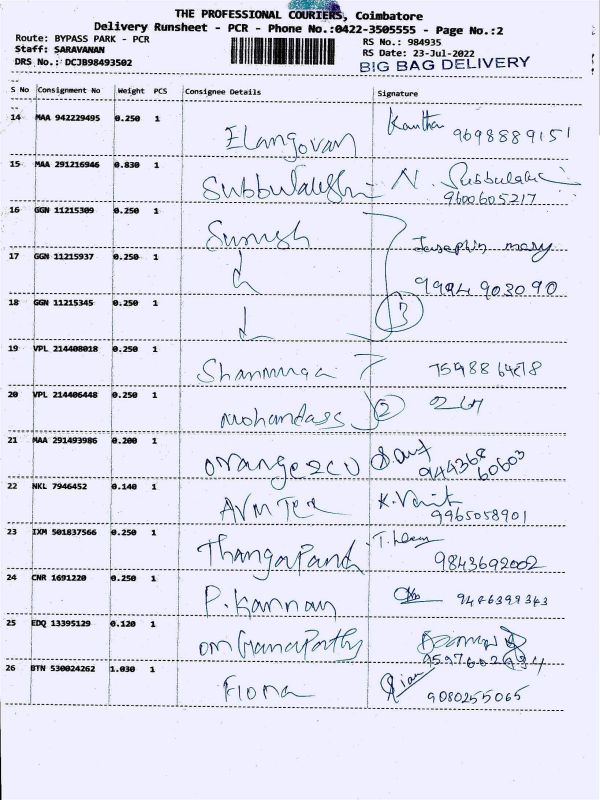 THE PROFESSIONAL COURIERS, Coimbatore
Delivery Runsheet - PCR - Phone No.:0422-3505555 - Page No.:2
Route: BYPASS PARK - PCR RS No.: 984935
Staff: SARAVANAN RS Date: 23-Jul-2022
DRS No.: DCJB98493502 BIG BAG DELIVERY
S No Consignment No Weight PCS Consignee Details Signature
14 MAA 942229495 0.250 1 Elangovan Kantha 9698889151
15 MAA 291216946 0.830 1 Subbulakshmi N. Subbulakshmi
9600605217
16 GGN 11215309 0.250 1 Suresh Josephin mary
17 GGN 11215937 0.250 1 9994903090
18 GGN 11215345 0.250 1 3
19 VPL 214408018 0.250 1 Shanmuga
20 VPL 214406448 0.250 1 Mohandass 2
21 MAA 291493986 0.200 1 944368
60603
22 NKL 7946452 0.140 1 AVM Tex K.
9965058901
23 IXM 501837566 0.250 1 Thangapandi 9843692002
24 CNR 1691220 0.250 1 P. Kannan
25 EDQ 13395129 0.120 1 Om Ganapathy
26 BTN 530024262 1.030 1 Fiona 9080255065